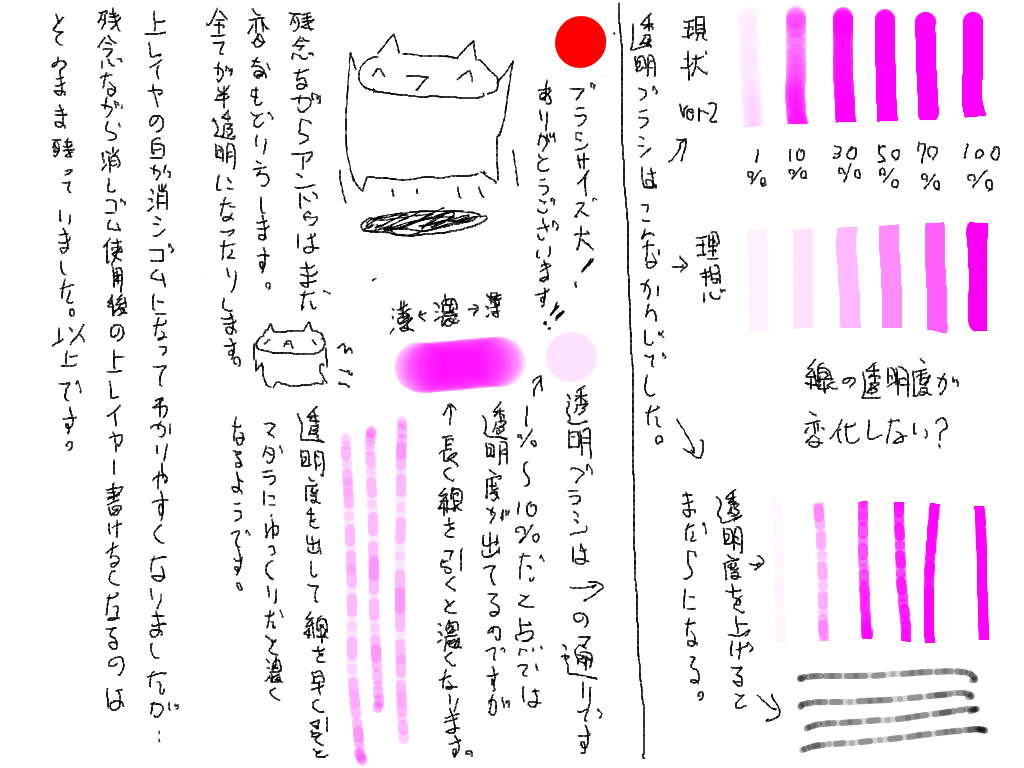 現状
ver2
1% 10% 30% 50% 70% 100%
理想
線の透明度が
変化しない?
透明度を上げると
まだらになる。
透明ブラシはこんなかんじでした。
ブラシサイズ大!
ありがとうございます!!
透明ブラシは→の通りです
1%〜10%だと点では
透明度が出てるのですが
長く線を引くと濃くなります。
薄←濃→薄
透明度を出して線を早く引くと
マダラにゆっくりだと濃く
なるようです。
残念ながらアンドゥはまだ
変なもどり方します。
全てが半透明になったりします。
上レイヤの白が消シゴムになってわかりやすくなりましたが…
残念ながら消しゴム使用後の上レイヤー書けなくなるのは
そのまま残っていました。以上です。